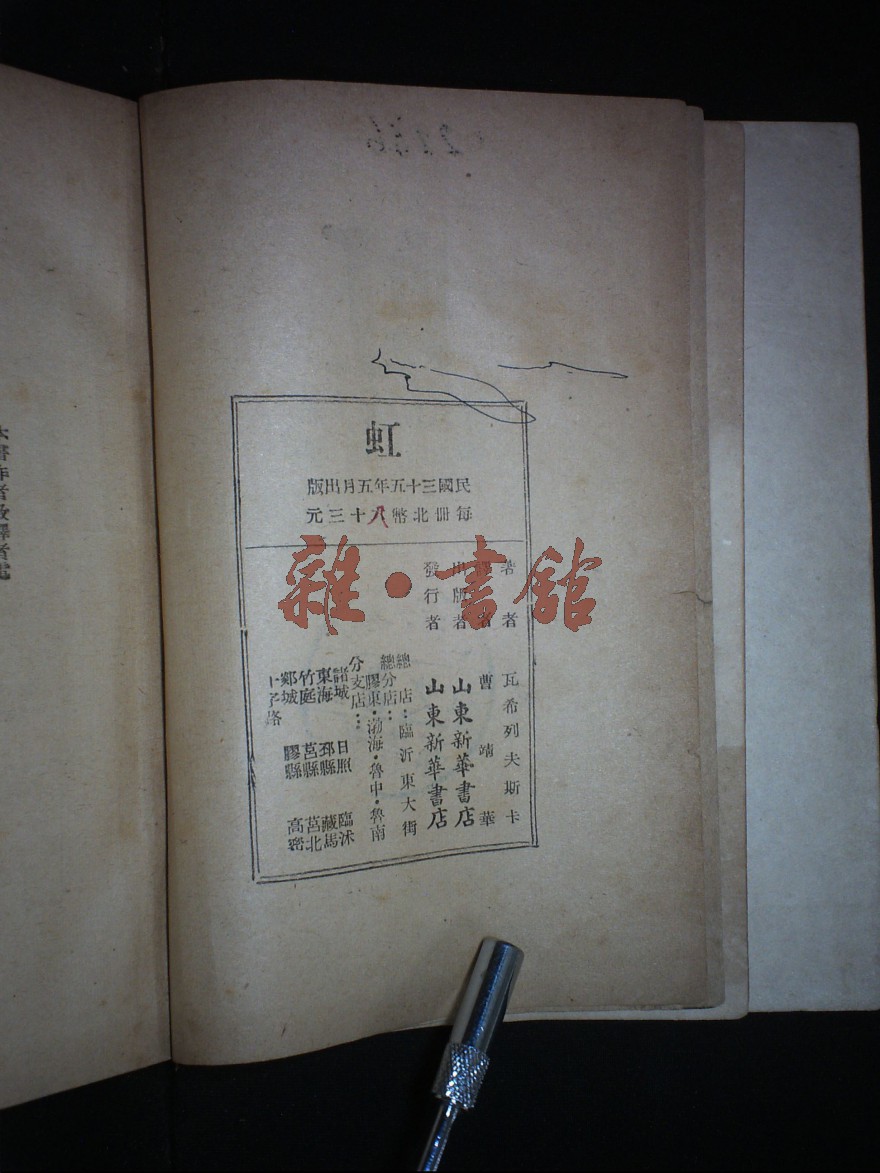 虹
民國三十五年五月出版
每冊北幣八十三元
著者 瓦希列夫斯卡
譯者 曹靖華
出版者 山東新華書店
發行者 山東新華書店
總店：臨沂東大街
總分店：
膠東·渤海·魯中·魯南
分支店：
諸城 日照 臨沭
東海 邳縣 藏馬
竹庭 莒縣 莒北
郯城 膠縣 高密
十字路
雜·書館